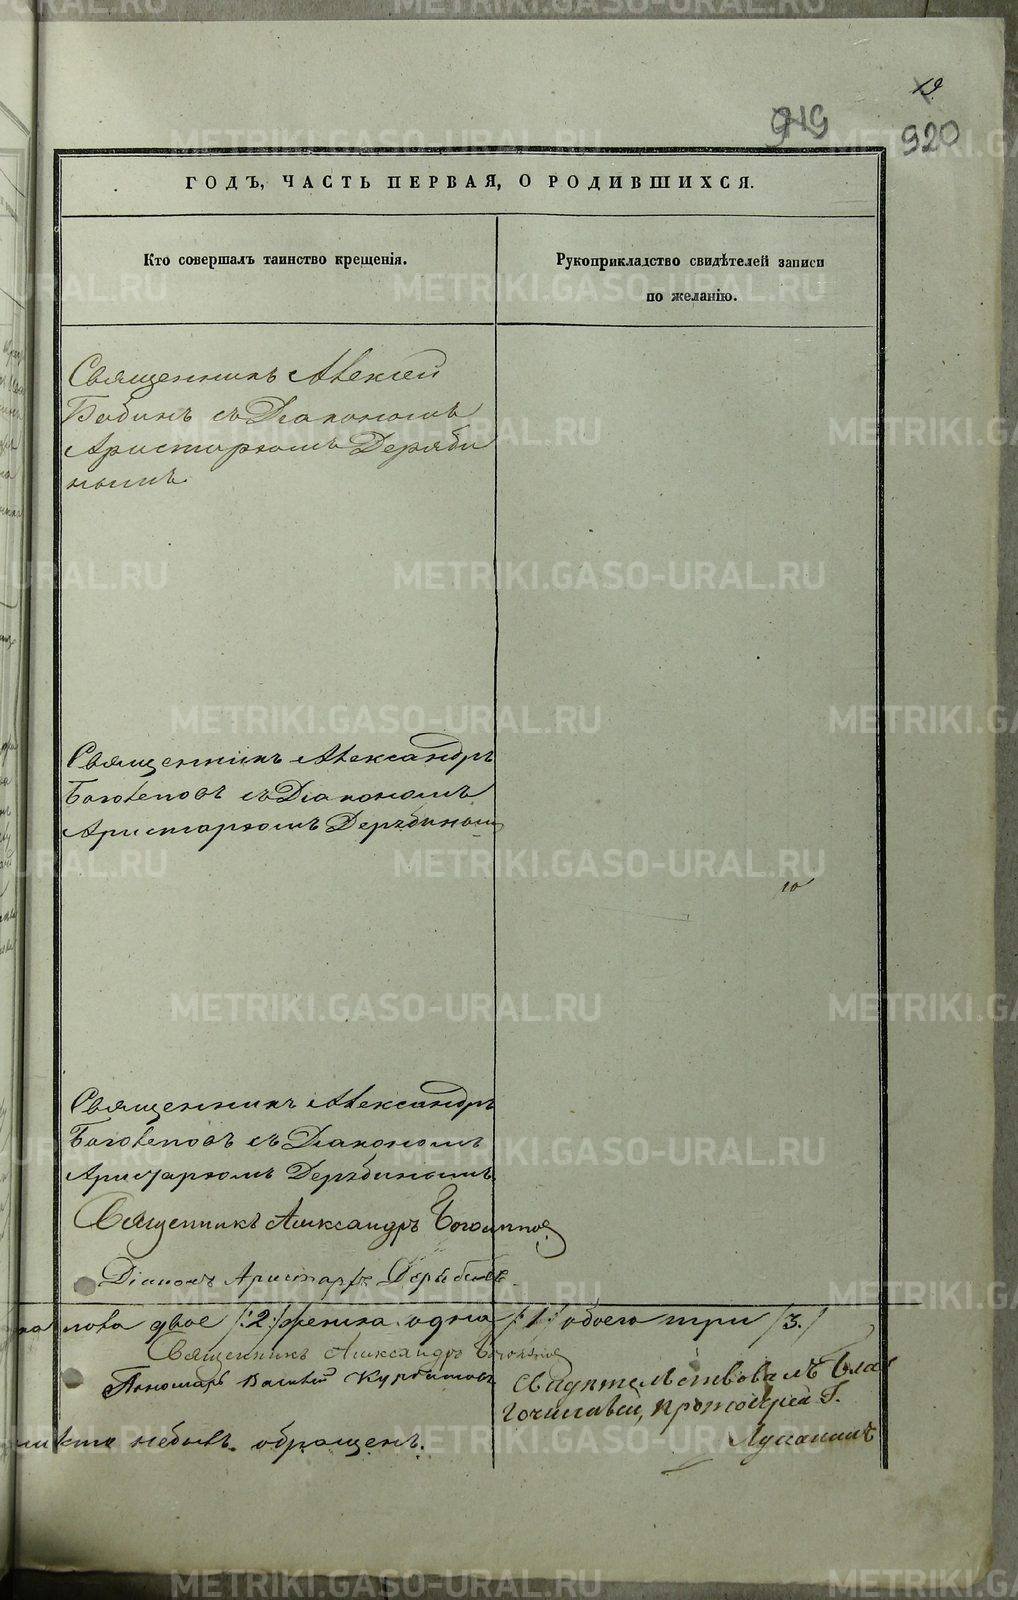 19.
919
920
ГОДЪ, ЧАСТЬ ПЕРВАЯ, О РОДИВШИХСЯ.
Кто совершалъ таинство крещенія.
Рукоприкладство свидѣтелей записи
по желанію.
Священникъ Алексей
Бабинъ съ Діакономъ
Аристархомъ Деряби
нымъ
Священникъ Александръ
Боголеповъ съ Діакономъ
Аристархомъ Дерябиным
10
Священникъ Александръ
Боголеповъ съ Діакономъ
Аристархомъ Дерябинымъ
Священникъ Александръ Боголепов
Діаконъ Аристархъ Дерябинъ
пола двое /:2:/ женска одна /:1:/ обоего три /3./
Священникъ Александръ Боголепов
Пономарь Василій Курбатовъ
Свидѣтельствовалъ Бла
гочинный, протоіерей Г.
никто небылъ обращенъ.
METRIKI.GASO-URAL.RU